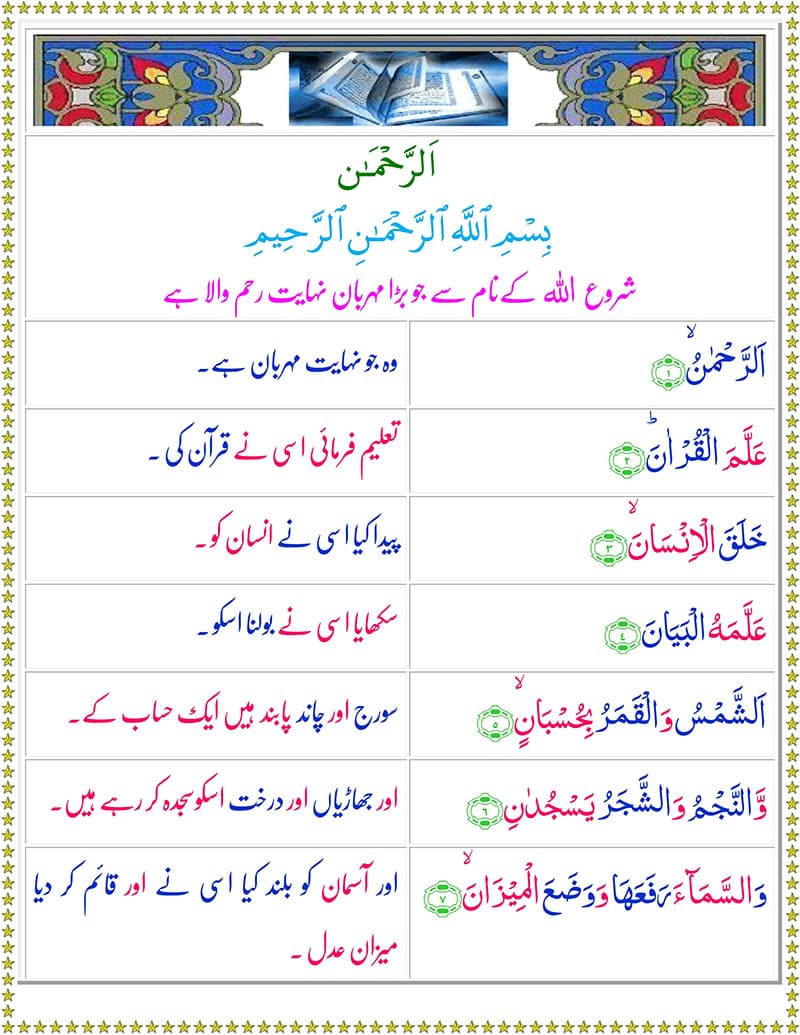 اَلرَّحْمَـٰن
بِسْمِ ٱللَّهِ ٱلرَّحْمَـٰنِ ٱلرَّحِيمِ
شروع اللہ کے نام سے جو بڑا مہربان نہایت رحم والا ہے
اَلرَّحْمٰنُۙ ﴿۱﴾
وہ جو نہایت مہربان ہے۔
عَلَّمَ الْقُرْاٰنَؕ ﴿۲﴾
تعلیم فرمائی اسی نے قرآن کی ۔
خَلَقَ الْاِنْسَانَۙ ﴿۳﴾
پیدا کیا اسی نے انسان کو۔
عَلَّمَهُ الْبَيَانَ ﴿۴﴾
سکھایا اسی نے بولنا اسکو۔
اَلشَّمْسُ وَالْقَمَرُ بِحُسْبَانٍۙ ﴿۵﴾
سورج اور چاند پابند ہیں ایک حساب کے۔
وَّالنَّجْمُ وَالشَّجَرُ يَسْجُدٰنِ ﴿۶﴾
اور جھاڑیاں اور درخت اسکو سجدہ کر رہے ہیں۔
وَالسَّمَآءَ رَفَعَهَا وَوَضَعَ الْمِيْزَانَۙ ﴿۷﴾
اور آسمان کو بلند کیا اسی نے اور قائم کر دیا
میزان عدل ۔